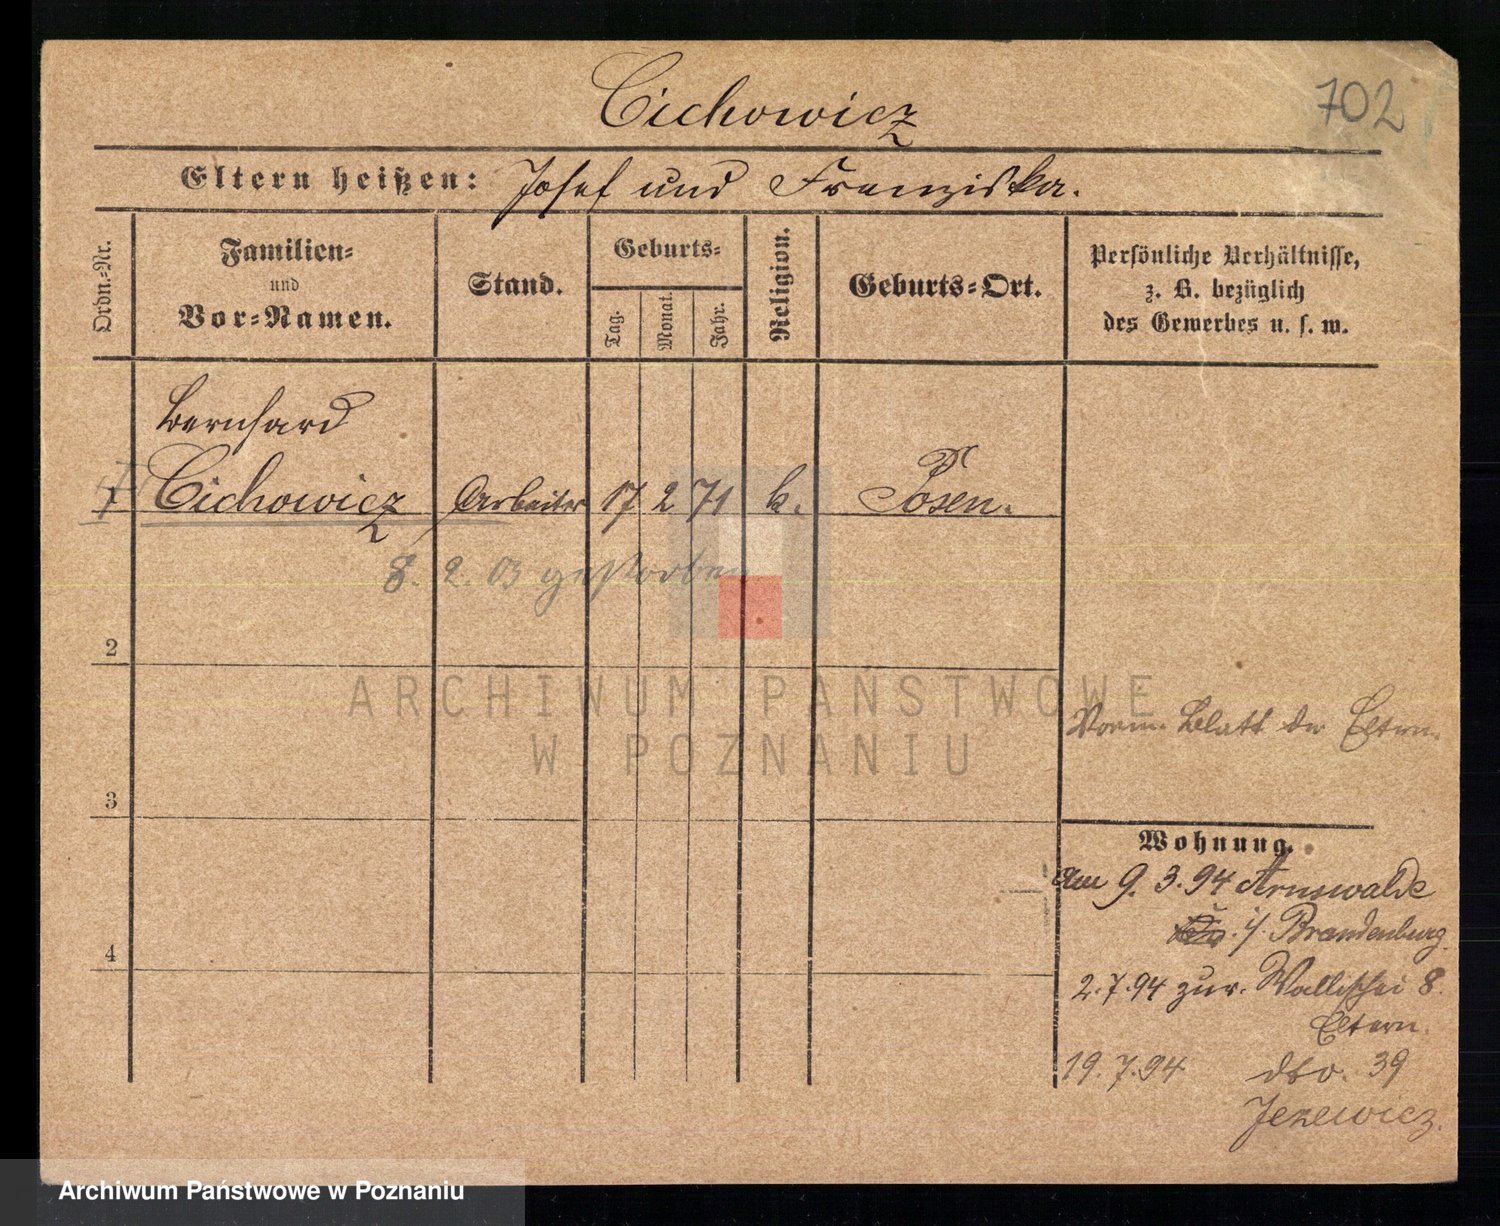 Cichowicz
702
Eltern heißen: Josef und Franziska.
Ordn.-Nr.
Familien-
und
Vor-Namen.
Stand.
Geburts-
Tag.
Monat.
Jahr.
Religion.
Geburts-Ort.
Persönliche Verhältnisse,
z. B. bezüglich
des Gewerbes u. s. w.
Bernhard
1 Cichowicz Arbeiter 17 2 71 k. Posen.
8. 2. 03 gestorben
2
ARCHIWUM PAŃSTWOWE
W POZNANIU
Blatt der Eltern.
3
Wohnung.
am 9. 3. 94 Arnswalde
i/. Brandenburg.
4
2. 7. 94 zur. Wallischei 8.
Eltern.
19. 7. 94 dto. 39
Jezewicz.
Archiwum Państwowe w Poznaniu